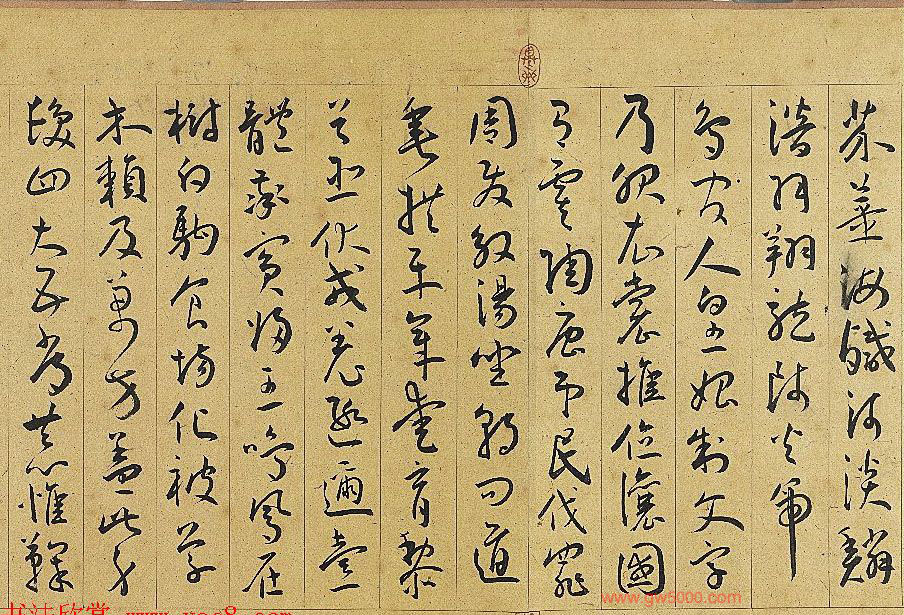 芥薑海鹹河淡鱗
潛羽翔龍師火帝
鳥官人皇始制文字
乃服衣裳推位讓國
有虞陶唐弔民伐罪
周發殷湯坐朝問道
垂拱平章愛育黎
首臣伏戎羌遐邇壹
體率賓歸王鳴鳳在
樹白駒食場化被草
木賴及萬方蓋此身
髮四大五常恭惟鞠
www.gw5000.com
书法欣赏 www.yac8.com